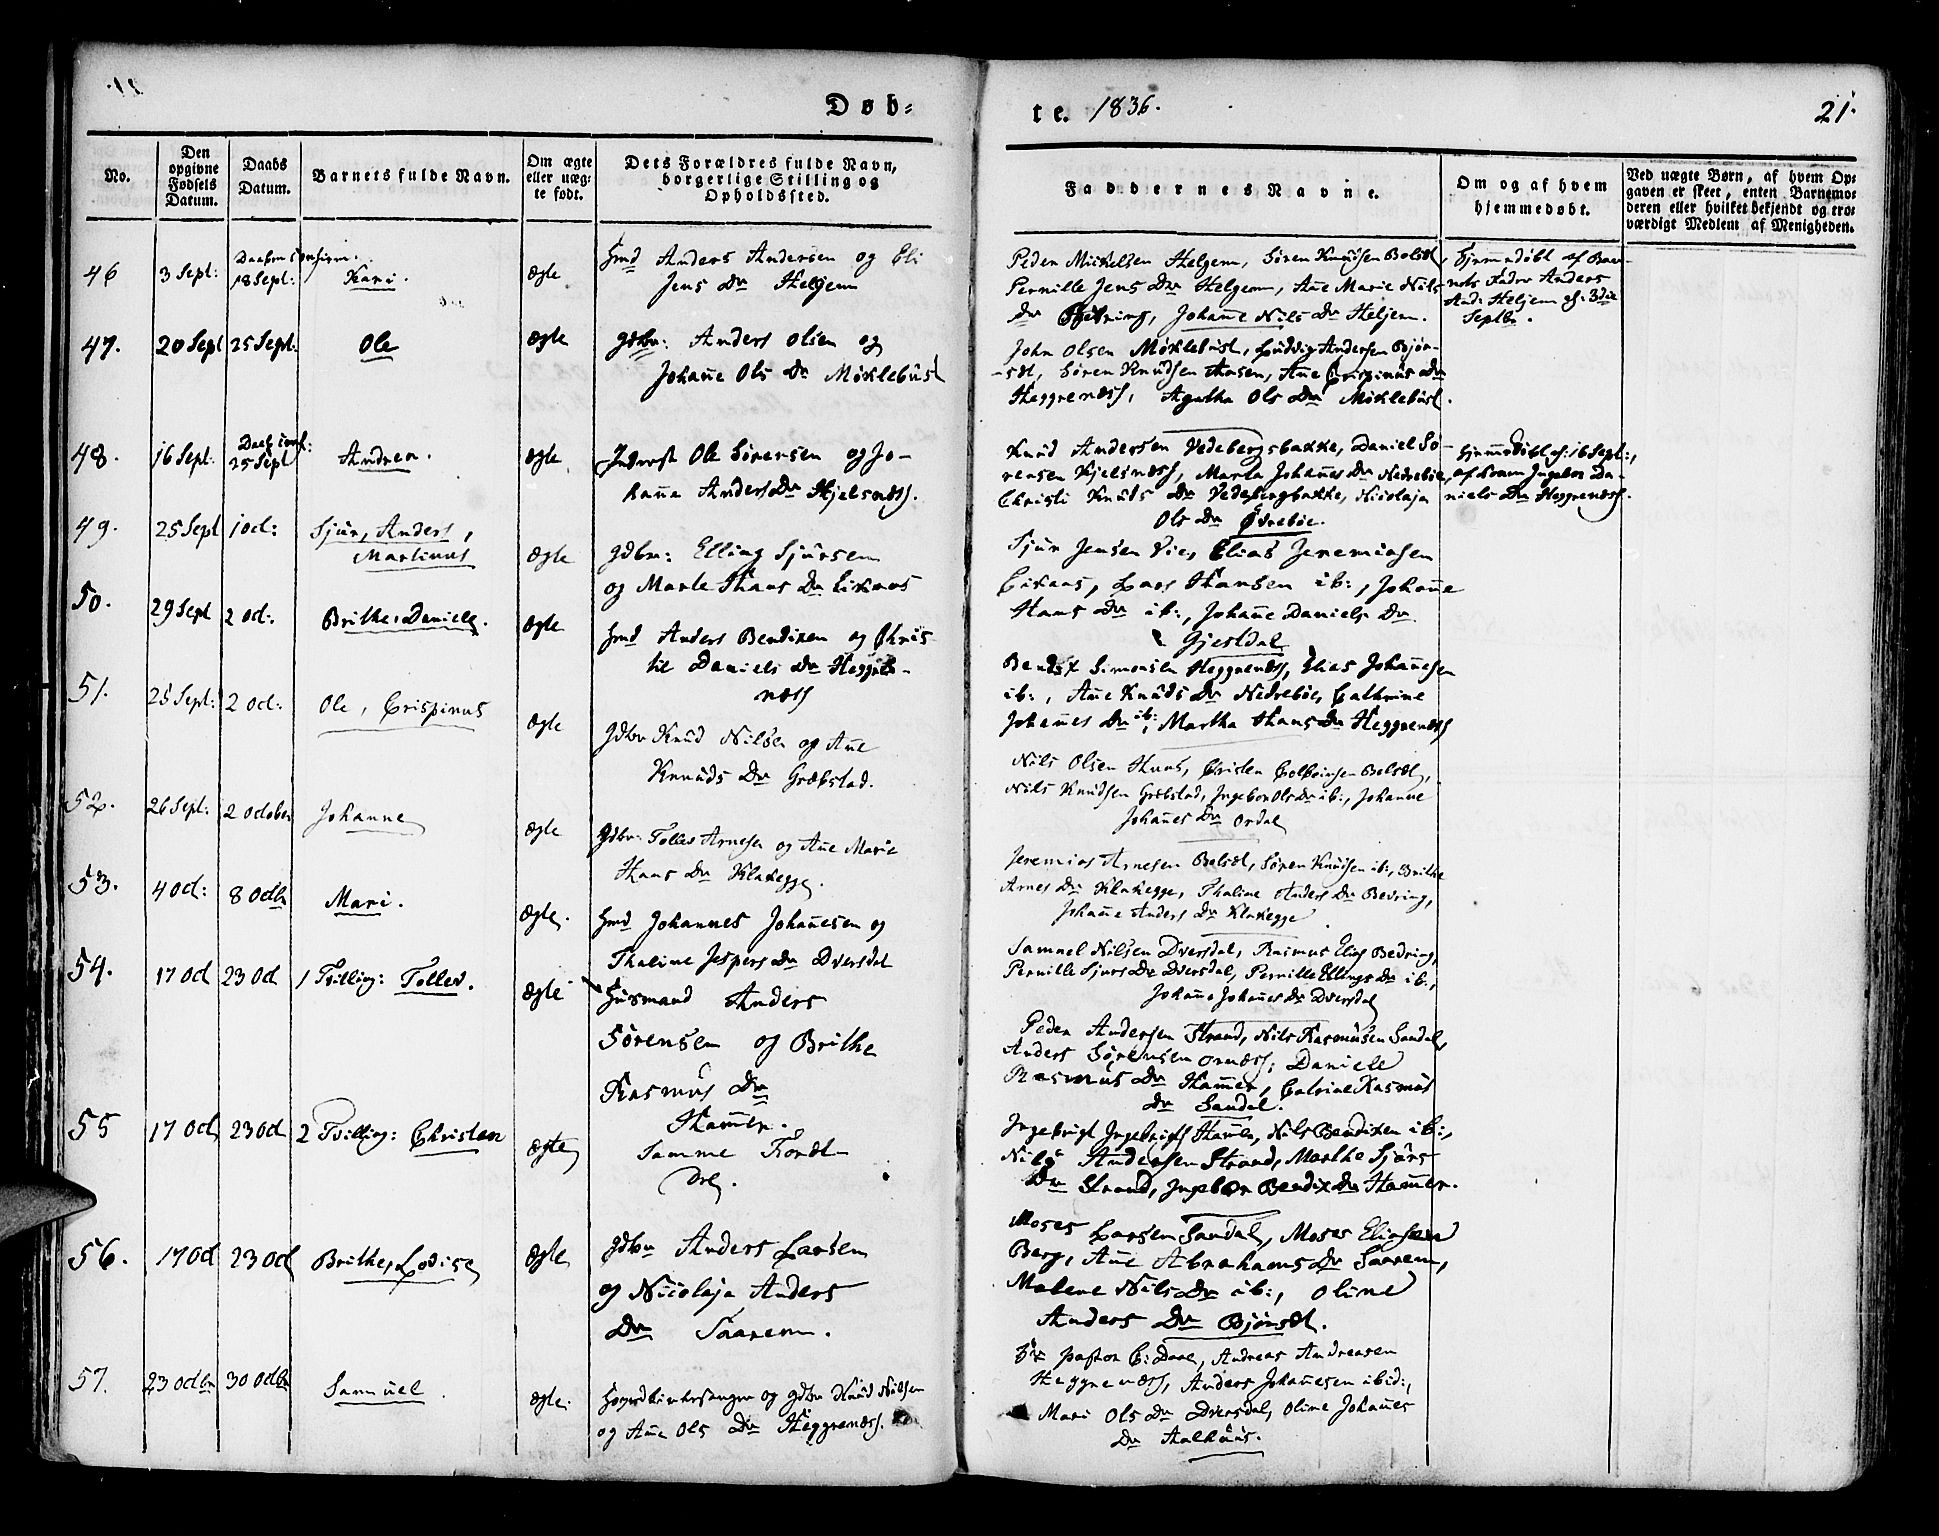 Døb-
te. 1836.
21.
No.
Den opgivne Fødsels Datum.
Daabs Datum.
Barnets fulde Navn.
Om ægte eller uægte født.
Dets Forældres fulde Navn, borgerlige Stilling og Opholdssted.
Faddernes Navne.
Om og af hvem hjemmedøbt.
Ved uægte Børn, af hvem Opgaven er skeet, enten Barnemoderen eller hvilket bekjendt og troværdigt Medlem af Menigheden.
46
3 Sept:
18 Sept:
Kari.
Ægte
Hmd Anders Andersen og Eli
Jens Dr Helgem
Peder Mickelsen Helgem, Sören Knudsen Bolsæt,
Pernille Jens Dtr Helgem, Ane Marie Nils
Dr Bedring, Johanne Nils Dr Heljem.
Hjemmedøbt af Bar-
nets Fader Anders
And: Heljem d: 3die
Septbr.
47.
20 Sept
25 Sept:
Ole
Ægte
Gdbr: Anders Olsen og
Johanne Ols Dr Møklebust
John Olsen Møklebust, Ludvig Andersen Bjør-
sæt, Sören Knudsen Aasen, Ane Crispinus Dr
Heggrenæss, Agatha Ols Dr Møklebust.
48.
16 Sept:
Daab conf:
25 Sept
Andrea.
Ægte
Inderst Ole Sörensen og Jo-
hanne Anders Dr Kjelsnæss.
Knud Andersen Vedebergsbakke, Daniel Sö-
rensen Kjelsnæss, Marta Johannes Dr Nedrebøe,
Christi Knuds Dr Vedebergbakke, Nicolaja
Ols Dr Øvrebøe.
Hjemmedøbt d: 16 Sept:,
af Konen Ingebor Da-
niels Dr Heggrenæss.
49.
25 Sept
1 Oct:
Sjur, Anders,
Martinus
Ægte
Gdbr: Elling Sjursen
og Marte Hans Dr Eikaas
Sjur Jensen Vie, Elias Jeremiasen
Eikaas, Lars Hansen ib:, Johanne
Hans Dr ib:, Johanne Daniels Dr
Gjesdal
50.
29 Sept
2 Oct:
Brithe, Daniele.
Ægte
Hmd Anders Bendixen og Chris-
ti Daniels Dr Heggre-
næss
Bendix Simonsen Heggrenæss, Elias Johannesen
ib:, Ane Knuds Dr Nedrebøe, Cathrine
Johannes Dr ib:, Martha Hans Dr Heggrenæss
51.
25 Sept:
2 Oct:
Ole, Crispinus
Ægte
Gdbr Knud Nilsen og Ane
Knuds Dr Grøbstad.
Nils Olsen Huus, Cristen Colbeinsen Bolsæt,
Nils Knudsen Grøbstad, Ingebor Ols Dr ib:, Johanne
Johannes Dr Ordal
52.
26 Sept:
2 October
Johanne
Ægte
Gdbr: Tollev Arnesen og Ane Marie
Hans Dr Klakegge.
Jeremias Arnesen Bolsæt, Sören Knudsen ib:, Brithe
Arnes Dr Klakegge, Thaline Anders Dr Bedring,
Johanne Anders Dr Klakegge
53.
4 Oct:
8 Octbr
Mari.
Ægte.
Hmd Johannes Johannesen og
Thaline Jespers Dr Dversdal
Samuel Nilsen Dversdal, Rasmus Elias Bedring,
Pernille Sjurs Dr Dversdal, Pernille Ellings Dr ib:,
Johanne Johannes Dr Dversdal
54.
17 Oct
23 Oct
1 Tvilling: Tollev.
Ægte
Husmand Anders
Sörensen og Brithe
Rasmus Dr
Hammer.
Peder Andersen Strand, Nils Rasmusen Sandal,
Anders Sörensen Ornæss, Daniele
Rasmus Dr Hammer, Catrine Rasmus
Dr Sandal.
55
17 Oct
23 Oct
2 Tvilling: Christen
Ægte
Samme Foræl-
dre.
Ingebrigt Ingebrigts Hammer, Nils Bendixen ib:,
Nils Andersen Strand, Marthe Sjurs
Dr Strand, Ingebor Bendix Dr Hammer.
56.
17 Oct
23 Oct
Brithe, Lovise
Ægte
Gdbr Anders Larsen
og Nicolaja Anders
Dr Saarem.
Moses Larsen Sandal, Moses Eliasen
Berg, Ane Abrahams Dr Saarem,
Malene Nils Dr ib:, Oline
Anders Dr Bjørsæt.
57.
23 Octbr
30 Octbr
Samuel.
Ægte.
og Gdbr Knud Nilsen
og Ane Ols Dr Heggrenæss.
Hr Pastor C: Daae, Andreas Andreasen
Heggrenæss, Anders Johannesen ibid:,
Mari Ols Dr Dversdal, Oline Johannes
Dr Aalhuus.